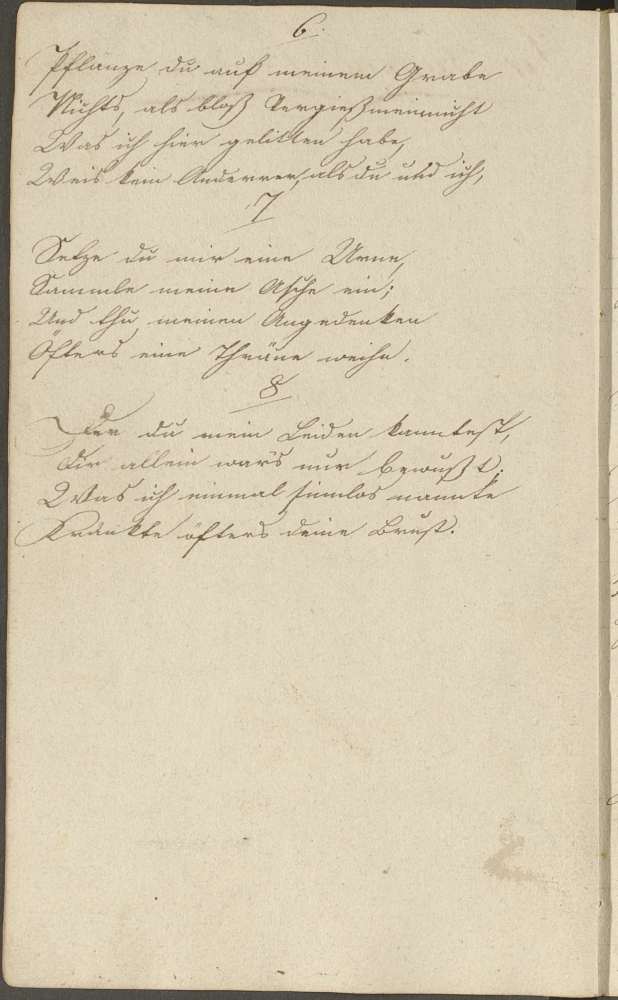 6.
Pflanze du auf meinem Grabe
Nichts, als bloß Vergießmeinnicht
Was ich hier gelitten habe,
Weis kein Anderrer, als du und ich,
7
Setze du mir eine Urne,
Sammle meine Asche ein;
Und thu meinen Angedenken
Öfters eine Thräne weihn.
8
Der du mein Leiden kanntest,
Dir allein war's nur bewußt;
Was ich einmal sinnlos nannte
Kränkte öfters deine Brust.